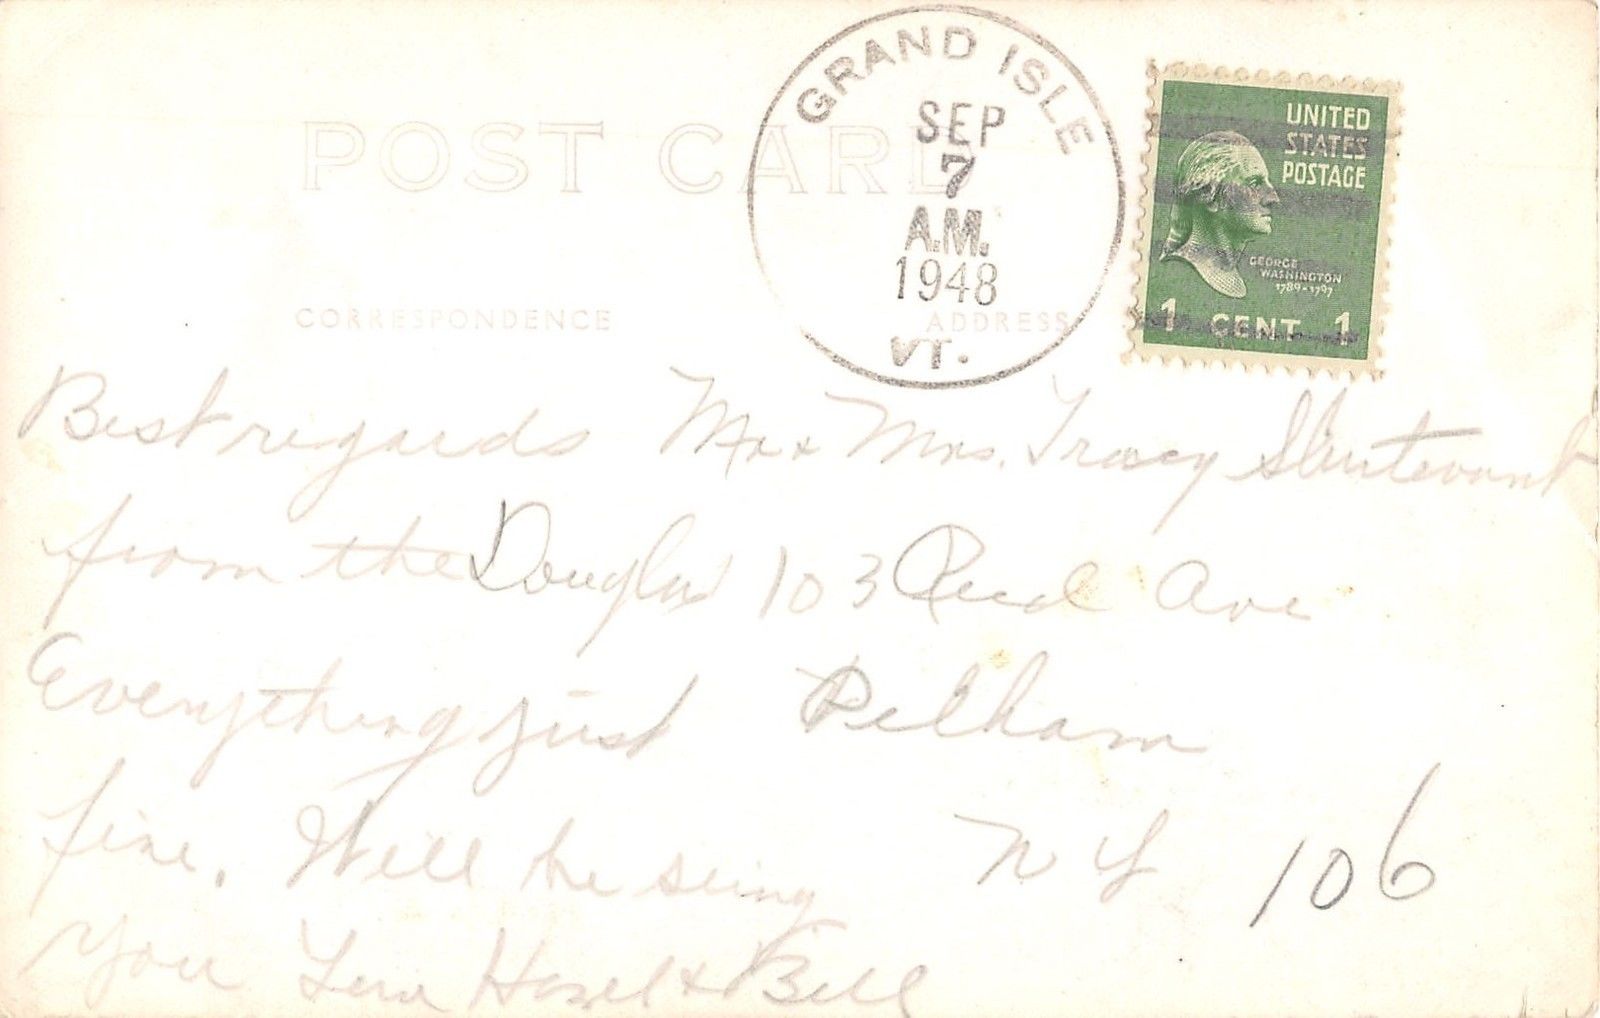 POST CARD
GRAND ISLE
SEP
7
A.M.
1948
VT.
UNITED
STATES
POSTAGE
GEORGE
WASHINGTON
1789-1797
1 CENT 1
CORRESPONDENCE
ADDRESS
Best regards
from the Douglas
Everything just
fine. Will be seing
you Hazel & Bill
Mr & Mrs. Tracy Sturtevant
103 Reed Ave
Pelham
N Y
106